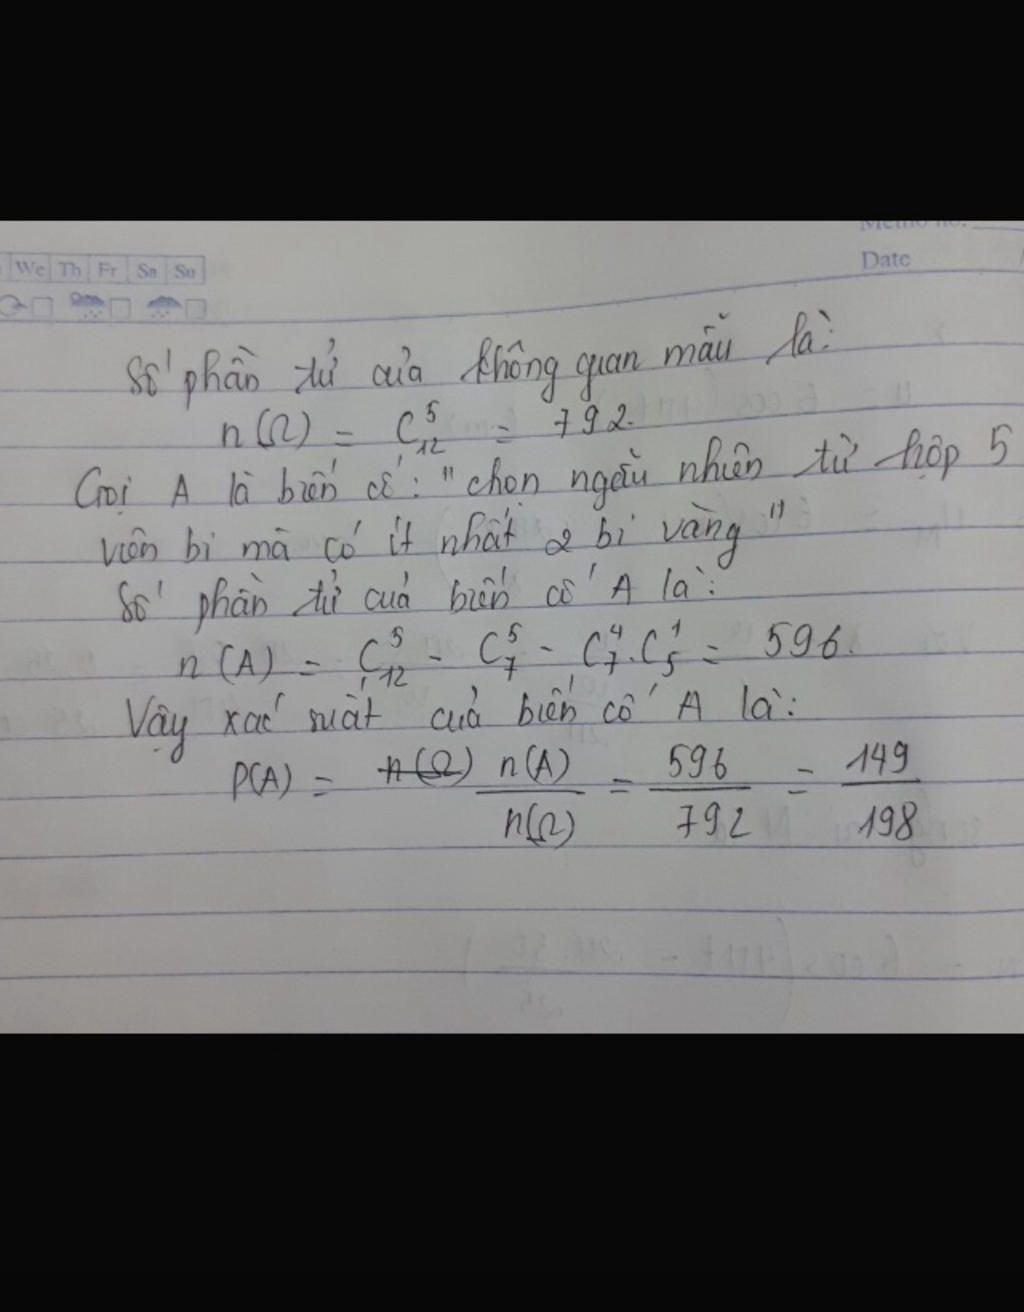 Memo no.
Date
We Th Fr Sa Su
Số phần tử của không gian mẫu là:
n(Ω) = C⁵₁₂ = 792.
Gọi A là biến cố: "chọn ngẫu nhiên từ hộp 5
viên bi mà có ít nhất 2 bi vàng"
Số phần tử của biến cố A là:
n(A) = C⁵₁₂ - C⁵₇ - C⁴₇.C¹₅ = 596.
Vậy xác suất của biến cố A là:
P(A) = n(Ω) n(A)/n(Ω) = 596/792 = 149/198